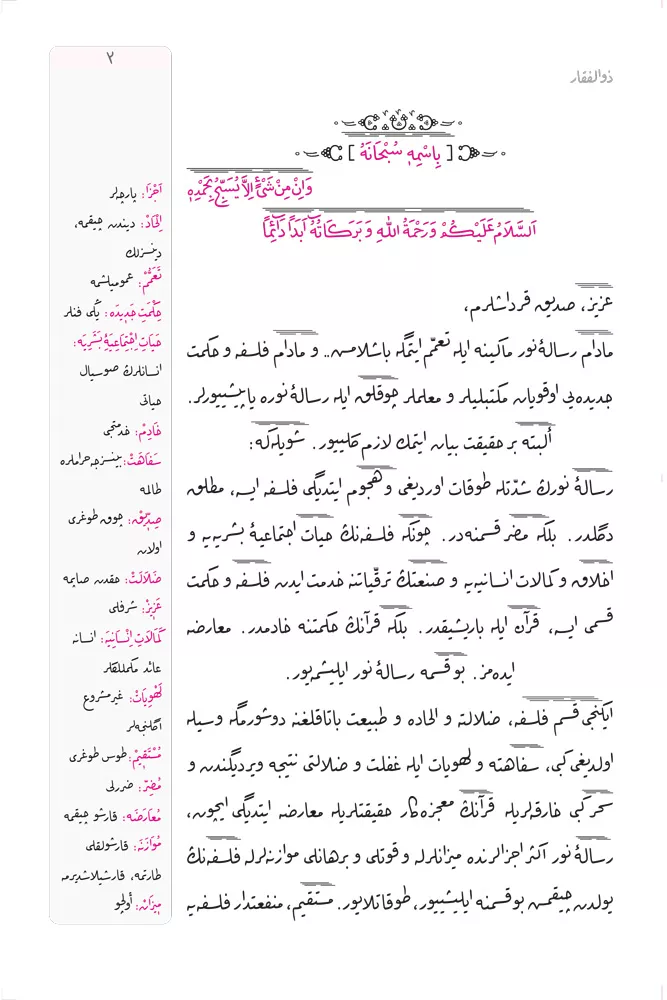 ذوالفقار
٢
[ بِاسْمِهِ سُبْحَانَهُ ]
وَاِنْ مِنْ شَىْءٍ اِلَّا يُسَبِّحُ بِحَمْدِهِ
اَلسَّلَامُ عَلَيْكُمْ وَرَحْمَةُ اللهِ وَبَرَكَاتُهُ اَبَدًا دَائِمًا
عزيز، صديق قرداشلرم،
مادام رسالهٔ نور ماكينه ايله تعمّم ايتمگه باشلامش.. و مادام فلسفه و حكمت
جديده‌يى اوقويان مكتبليلر و معلملر چوقلق ايله رسالهٔ نوره ياپيشييورلر.
ألبته بر حقيقت بيان ايتمك لازم گلييور. شويله‌كه:
رسالهٔ نورڭ شدّتله طوقات اورديغى و هجوم ايتديگى فلسفه ايسه، مطلق
دگلدر. بلكه مضر قسمنه‌در. چونكه فلسفه‌نڭ حيات اجتماعيهٔ بشريه‌يه و
اخلاق و كمالات انسانيه‌يه و صنعتڭ ترقّياتنه خدمت ايدن فلسفه و حكمت
قسمى ايسه، قرآن ايله باريشيقدر. بلكه قرآنڭ حكمتنه خادمدر. معارضه
ايده‌مز. بو قسمه رسالهٔ نور ايليشمه‌يور.
ايكنجى قسم فلسفه، ضلالته و الحاده و طبيعت باتاقلغنه دوشورمگه وسيله
اولديغى كبى، سفاهته و لهويات ايله غفلت و ضلالتى نتيجه ويرديگندن و
سحر كبى خارقه‌لريله قرآنڭ معجزه‌كار حقيقتلريله معارضه ايتديگى ايچون،
رسالهٔ نور أكثر اجزالرنده ميزانلرله و قوتلى و برهانلى موازنه‌لرله فلسفه‌نڭ
يولدن چيقمش بو قسمنه ايليشييور، طوقاتلايور. مستقيم، منفعتدار فلسفه‌يه
اَجْزَا: پارچه‌لر
اِلْحَادْ: ديندن چيقمه،
دينسزلك
تَعَمُّمْ: عموميلشمه
حِكْمَتِ جَدِيدَه: يڭى فنلر
حَيَاتِ اِجْتِمَاعِيَۀِ بَشَرِيَه:
انسانلرڭ صوسيال
حياتى
خَادِمْ: خدمتجى
سَفَاهَتْ: بينسزجه حراملره
طالمه
صِدِّيقْ: چوق طوغرى
اولان
ضَلَالَتْ: حقدن صاپمه
عَزِيزْ: شرفلى
كَمَالَاتِ اِنْسَانِيَه: انسانه
عائد مكمللكلر
لَهْوِيَاتْ: غير مشروع
اگلنجه‌لر
مُسْتَقِيمْ: طوس طوغرى
مُضِرّ: ضررلى
مُعَارَضَه: قارشو چيقمه
مُوَازَنَه: قارشولقلى
طارتمه، قارشيلاشديرمه
مِيزَانْ: أولچو